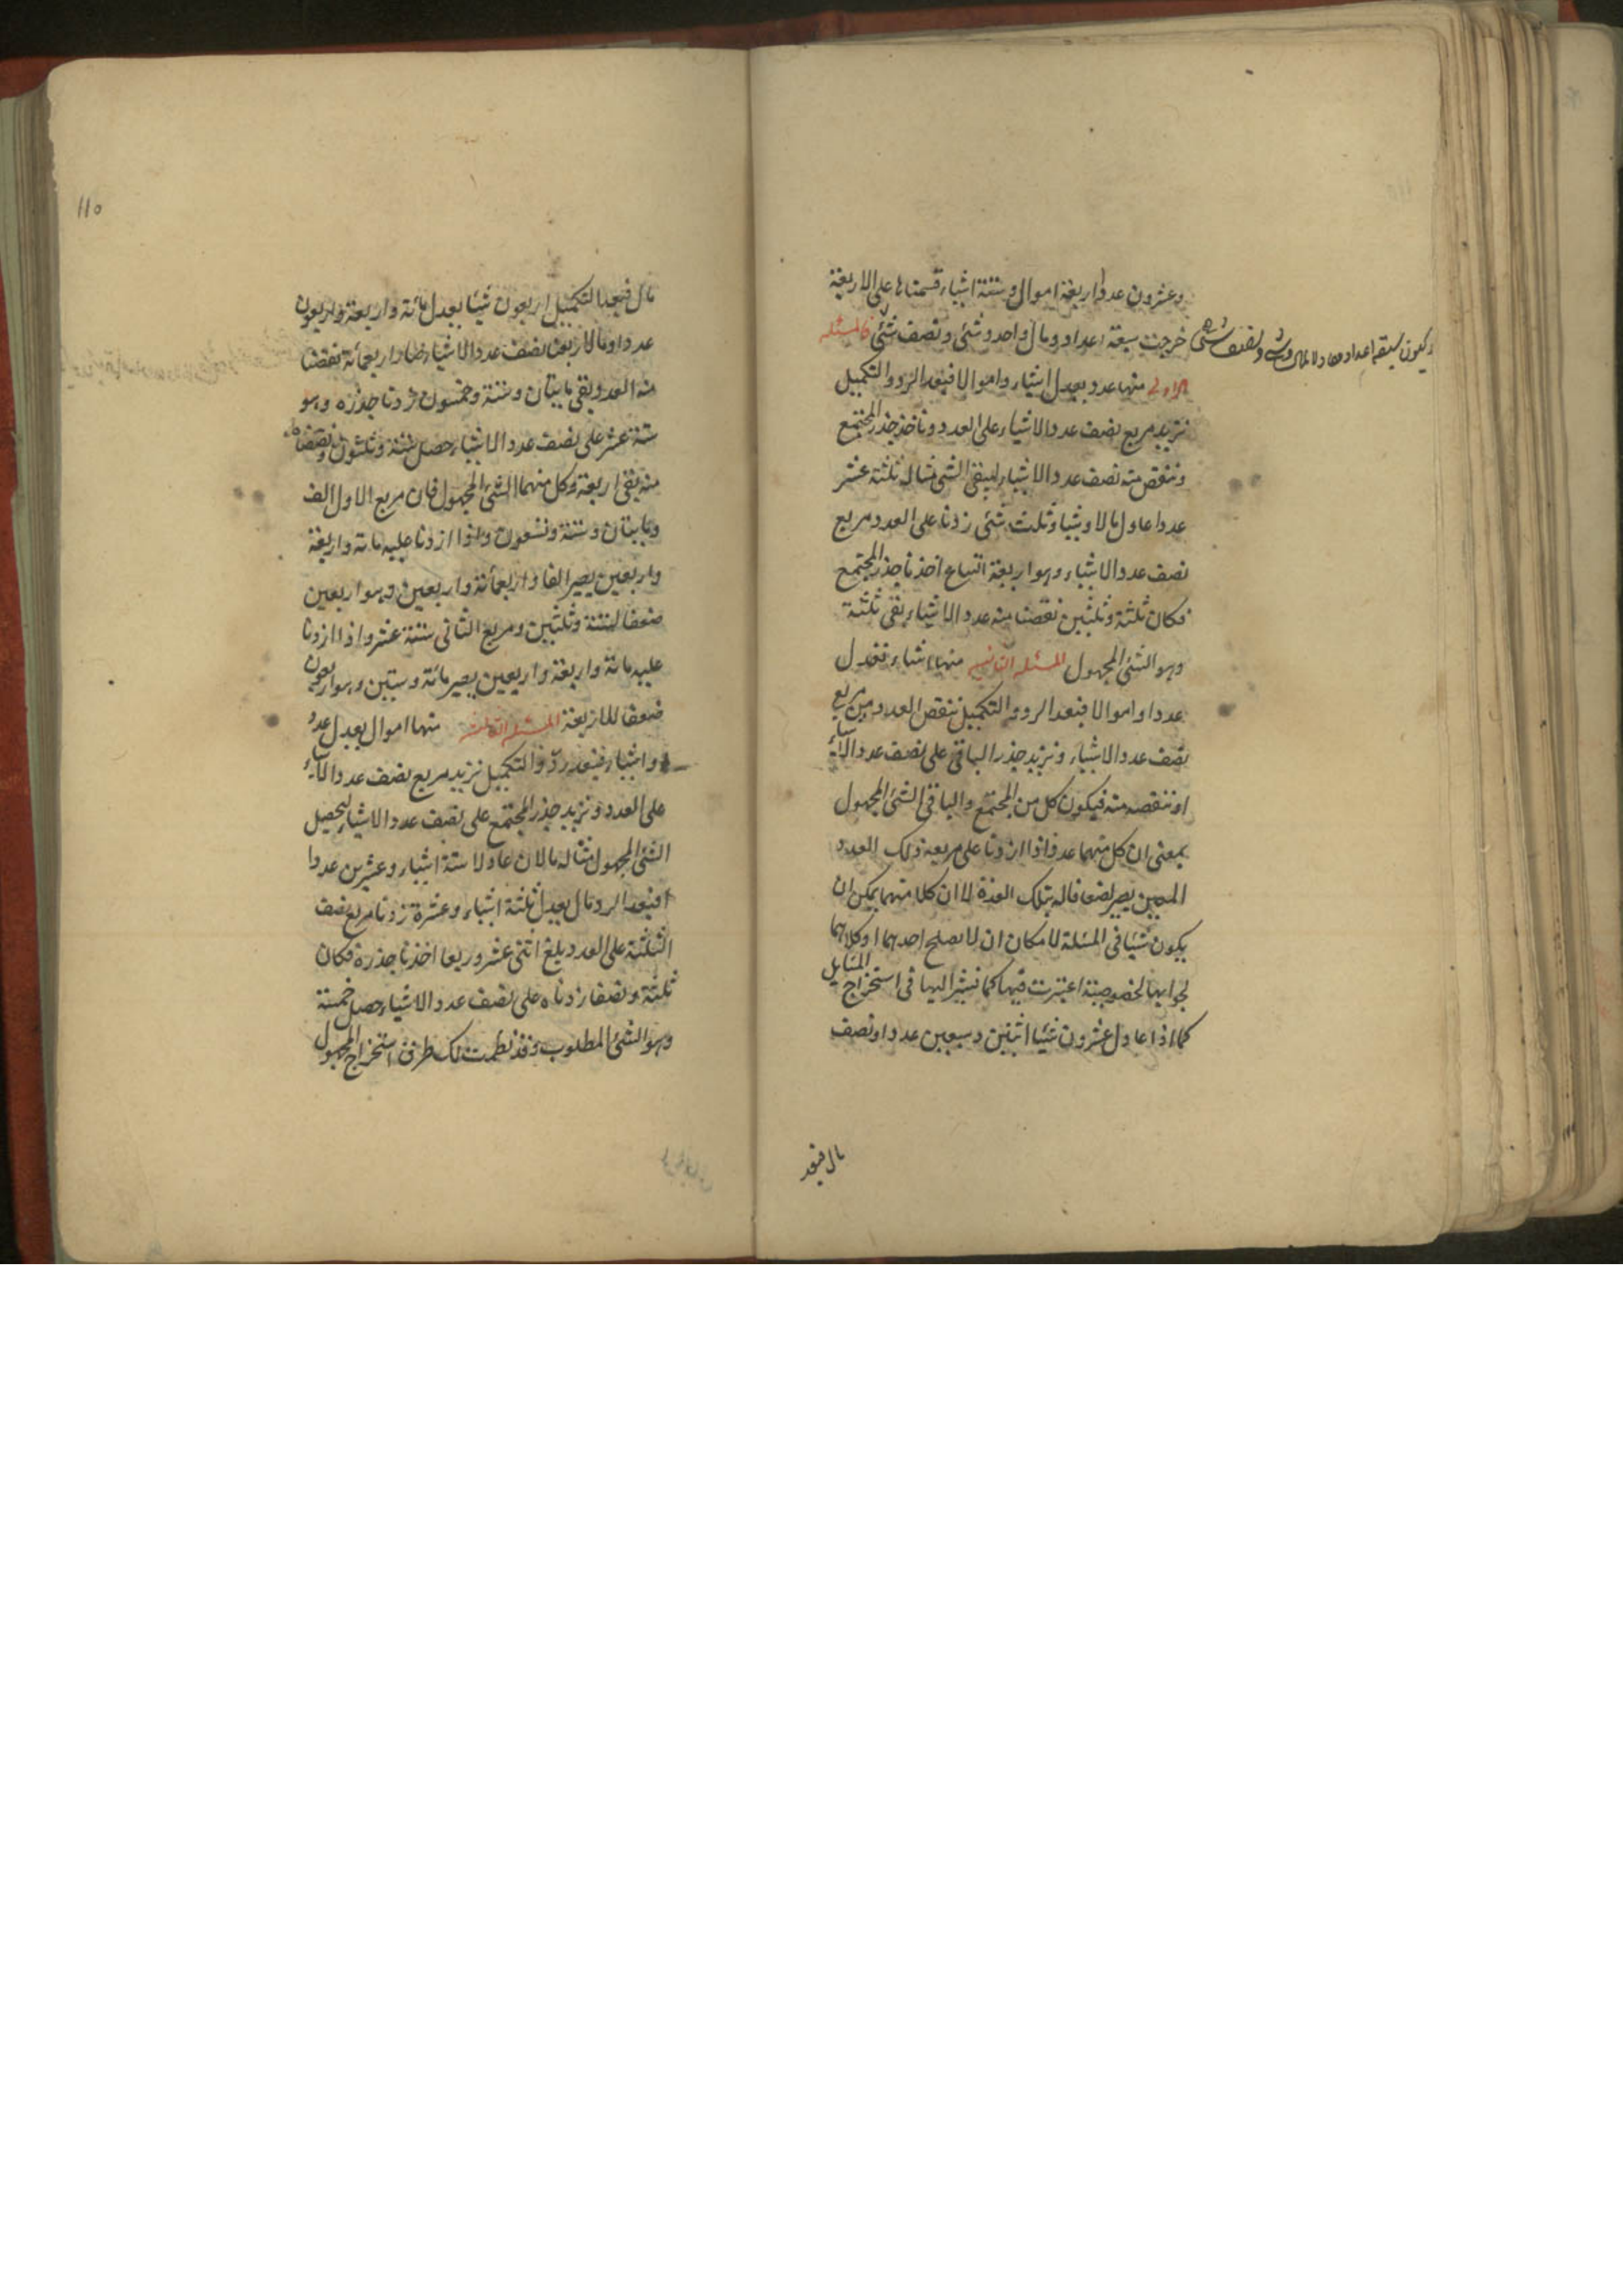 وعشرون عددا واربعة اموال وستة اشياء قسمناها على الاربعة
خرجت سبعة اعداد ومال واحد وشئ ونصف شئ فالمسئله
الاولى منها عدد يعدل اشياء واموالا فبعد الرد والتكميل
نزيد مربع نصف عدد الاشياء على العدد وناخذ جذر المجتمع
وننقص منه نصف عدد الاشياء ليبقى الشئ مثاله ثلثة عشر
عددا عادل مالا وشيا وثلث شئ زدنا على العدد مربع
نصف عدد الاشياء وهو اربعة اتساع اخذنا جذر المجتمع
فكان ثلثة وثلثين نقصنا منه عدد الاشياء بقى ثلثة
وهو الشئ المجهول المسئله الثانيه منها اشياء تعدل
عددا واموالا فبعد الرد والتكميل ننقص العدد من مربع
نصف عدد الاشياء ونزيد جذر الباقى على نصف عدد الاشياء
او ننقصه منه فيكون كل من المجتمع والباقى الشئ المجهول
بمعنى ان كل منهما عدد اذا زدنا على مربعه ذلك العدد
المعين يصير لضعافاله بتلك العدة لا ان كلا منهما يمكن ان
يكون شيئا فى المسئلة لامكان ان لا يصلح احدهما او كلاهما
لجوابها لخصوصية اعتبرت فيها كما نشير اليها فى استخراج المسايل
كما اذا عادل عشرون شيئا اثنين وسبعين عددا ونصف
مال فبعد
يكون سبعة اعداد معادلا لمال وشئ ونصف شئ
110
مال فبعد التكميل اربعون شيئا يعدل مائة واربعة واربعون
عددا ومالا ربعنا نصف عدد الاشياء صار اربعمائة نقصنا
منه العدد وبقى مايتان وستة وخمسون زدنا جذره وهو
ستة عشر على نصف عدد الاشياء حصل ستة وثلثون ونقصناه
منه بقى اربعة وكل منهما الشئ المجهول فان مربع الاول الف
ومايتان وستة وتسعون واذا زدنا عليه مائة واربعة
واربعين يصير الفا واربعمائة واربعين وهو اربعين
ضعفا لستة وثلثين ومربع الثانى ستة عشر واذا زدنا
عليه مائة واربعة واربعين يصير مائة وستين وهو اربعون
ضعفا للاربعة المسئله الثالثه منها اموال يعدل عددا
واشياء فبعد رد والتكميل نزيد مربع نصف عدد الاشياء
على العدد ونزيد جذر المجتمع على نصف عدد الاشياء ليحصل
الشئ المجهول مثاله مالان عادلا ستة اشياء وعشرين عددا
فبعد الرد مال يعدل ثلثة اشياء وعشرة زدنا مربع نصف
الثلثة على العدد بلغ اثنى عشر وربعا اخذنا جذره فكان
ثلثة ونصفا زدناه على نصف عدد الاشياء حصل خمسة
وهو الشئ المطلوب وقد نظمت لك طرق استخراج المجهول